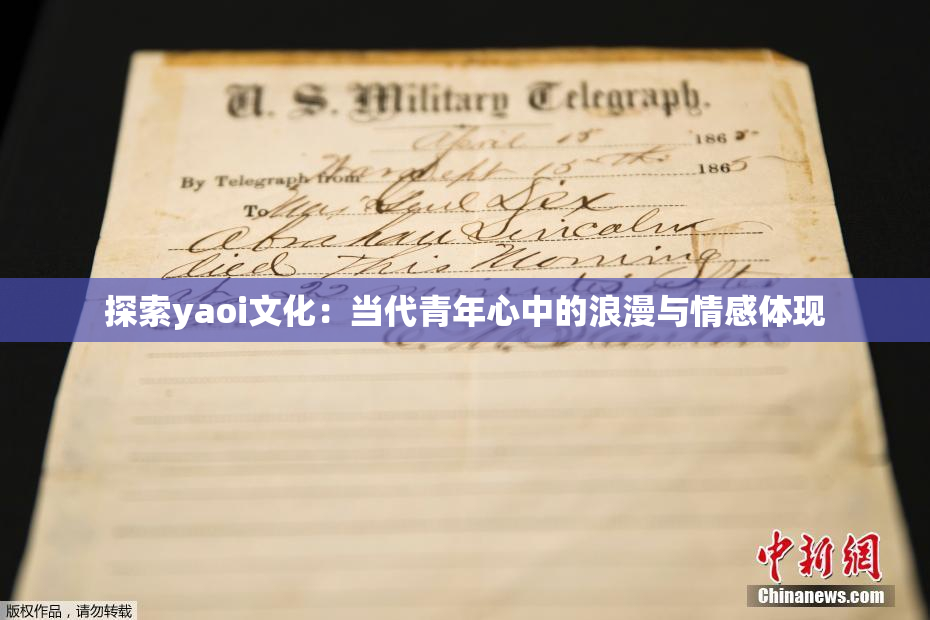 U. S. Military Telegraph.
April 15 1865
By Telegraph from War Dept 15th 1865
To Maj Genl Dix
Abraham Lincoln
died This Morning
22 minutes after
探索yaoi文化：当代青年心中的浪漫与情感体现
E. M. Stanton
中新网
Chinanews.com
版权作品，请勿转载